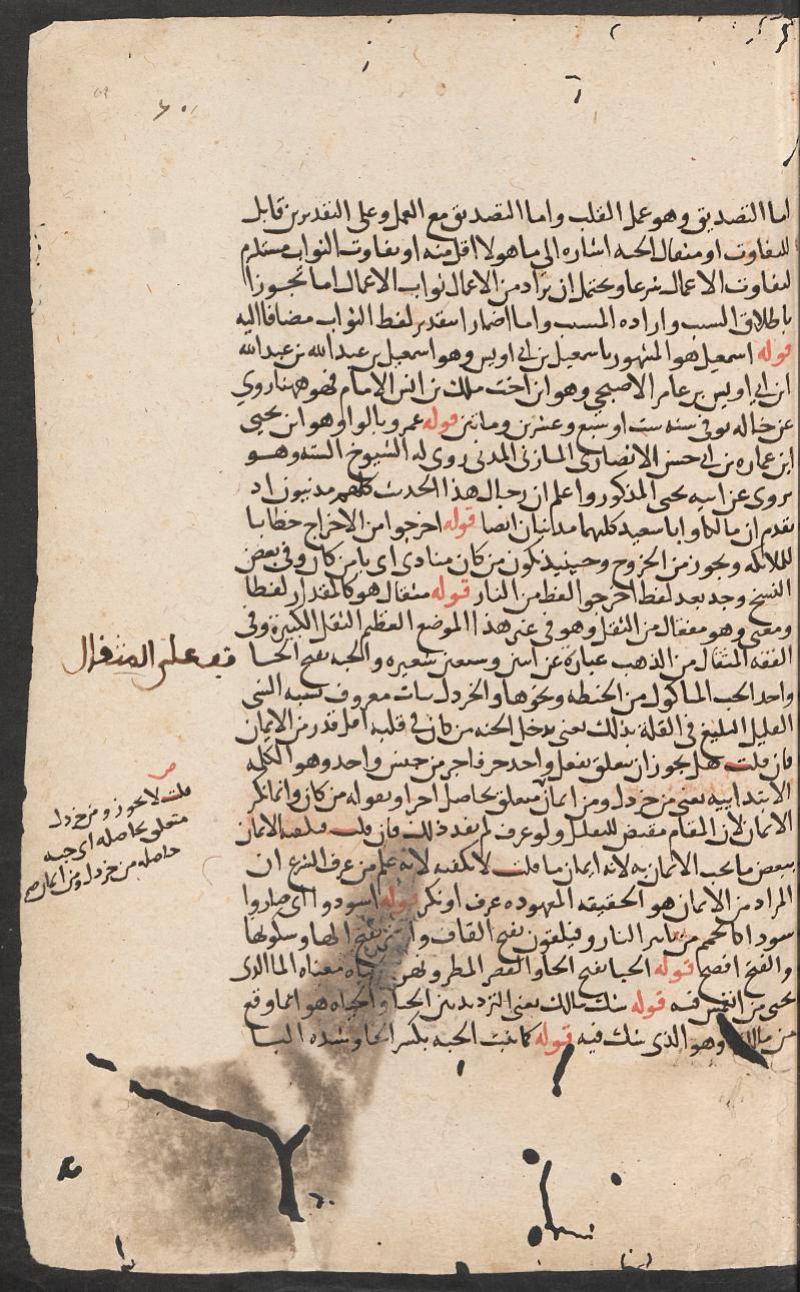 اما التصديق وهو عمل القلب واما التصديق مع العمل وعلى التقديرين قابل
للتفاوت او مثقال الحبه اشاره الى ما هو لا اقل منه او تفاوت الثواب مستلزم
لتفاوت الاعمال شرعا ويحتمل ان يراد من الاعمال ثواب الاعمال اما تجوزا
باطلاق السبب واراده المسبب واما اضمارا بتقدير لفظ الثواب مضافا اليه
قوله اسمعيل هو المشهور باسمعيل بن ابى اويس وهو اسمعيل بن عبد الله بن عبد الله
ابن ابى اويس بن عامر الاصبحى وهو ابن اخت ملك بن انس الامام فهو ههنا روى
عن خاله توفى سنه ست او سبع وعشرين ومايتين قوله عمرو بالواو وهو ابن يحيى
ابن عماره بن ابى حسن الانصارى المازنى المدنى روى له الشيوخ الستة وهو
يروى عن ابيه يحيى المذكور واعلم ان رجال هذا الحديث كلهم مدنيون اذ
تقدم ان مالكا وابا سعيد كليهما مدنيان ايضا قوله اخرجوا من الاخراج خطابا
للملائكه ويجوز من الخروج وحينيذ يكون من كان منادى اى يا من كان وفى بعض
النسخ وجد بعد لفظ اخرجوا لفظ من النار قوله مثقال هو كالمقدار لفظا
ومعنى وهو مفعال من الثقل وهو فى غير هذا الموضع العظيم الثقل الكبيرة وفى
الفقه المثقال من الذهب عبارة عن اثنين وسبعين شعيره والحبه بفتح الحا
واحد الحب الماكول من الحنطه ونحوها والخردل نبات معروف يشبه الشى
القليل البليغ فى القلة بذلك يعنى يدخل الجنه من كان فى قلبه اقل قدر من الايمان
فان قلت هل يجوز ان يتعلق بفعل واحد حرفا جر من جنس واحد وهو الكلمه
الابتداييه يعنى من خردل ومن ايمان متعلق بحاصل اخر او بقوله من كان وانما نكر
الايمان لان المقام مقتض للتقليل ولو عرف لم يفد ذلك فان قلت فيكفيه الايمان
ببعض ما يجب الايمان به لانه ايمان ما قلت لا يكفيه لانه علم من عرف الشرع ان
المراد من الايمان هو الحقيقه المعهوده عرف او نكر قوله اسودوا اى صاروا
سودا كالحمم من تاثير النار و فيلقون بفتح القاف و بفتح الها وسكونها
والفتح افصح قوله الحيا بفتح الحا والقصر المطر و نهر معناه الما الذى
يحيى من انغمس فيه قوله شك مالك يعنى الترديد بين الحيا والحياه هو انما وقع
من مالك وهو الذى شك فيه قوله كما تنبت الحبه بكسر الحا وشده البا
قف على المثقال
قلت لا يجوز ومن خردل
متعلق بحاصله اى حبه
حاصله من خردل ومن ايمان صح